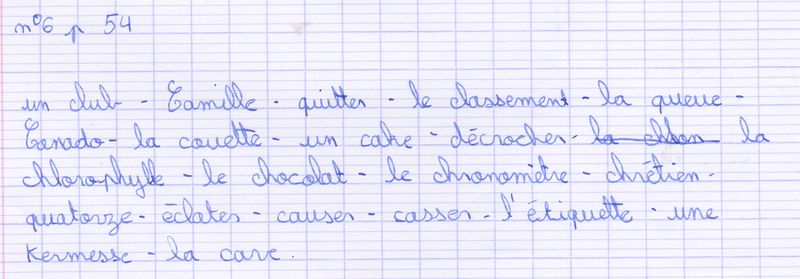 n°6 p 54
un club - Camille - quitter - le classement - la queue -
Canado - la couette - un cake - décrocher - la chlon la
chlorophylle - le chocolat - le chronomètre - chrétien -
quatorze - éclater - causer - casser - l'étiquette - une
kermesse - la care.